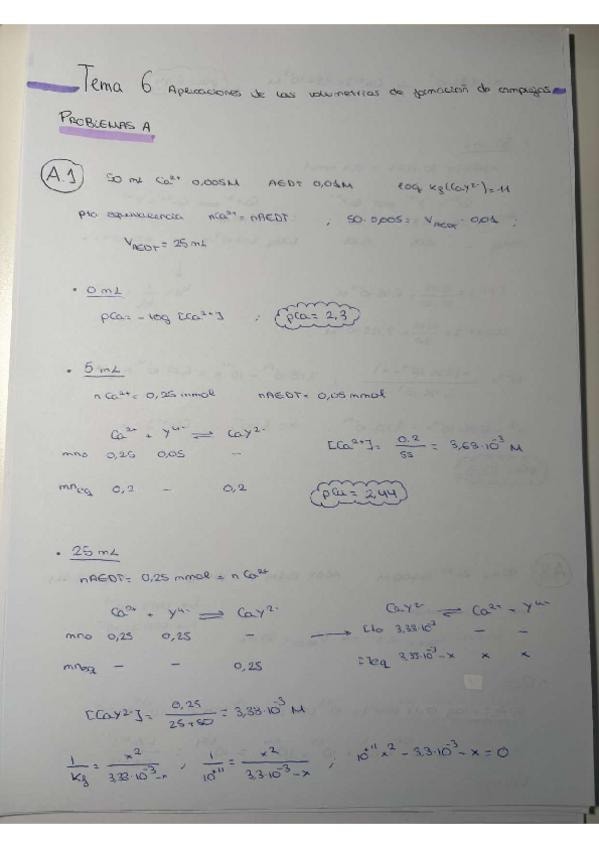 Tema 6 Aplicaciones de las volumetrías de formación de complejos
PROBLEMAS A
A.1 50 mL Ca²⁺ 0,005M AEDT 0,01M log Kf(CaY²⁻)=11
pto equivalencia nCa²⁺ = nAEDT ; 50·0,005 = V_AEDT · 0,01 ;
V_AEDT = 25 mL
• 0 mL
pCa = -log [Ca²⁺] ; pCa = 2,3
• 5 mL
nCa²⁺ = 0,25 mmol nAEDT = 0,05 mmol
Ca²⁺ + Y⁴⁻ ⇌ CaY²⁻
[Ca²⁺] = 0.2/55 = 3,63·10⁻³ M
mno 0,25 0,05 -
mneq 0,2 - 0,2
pCa = 2,44
• 25 mL
nAEDT = 0,25 mmol = nCa²⁺
Ca²⁺ + Y⁴⁻ ⇌ CaY²⁻ CaY²⁻ ⇌ Ca²⁺ + Y⁴⁻
mno 0,25 0,25 - → [ ]o 3,33·10⁻³ - -
mneq - - 0,25 [ ]eq 3,33·10⁻³-x x x
[CaY²⁻] = 0,25/(25+50) = 3,33·10⁻³ M
1/Kf = x²/(3,33·10⁻³-x) ; 1/10¹¹ = x²/(3,3·10⁻³-x) ; 10¹¹x² - 3,3·10⁻³ - x = 0